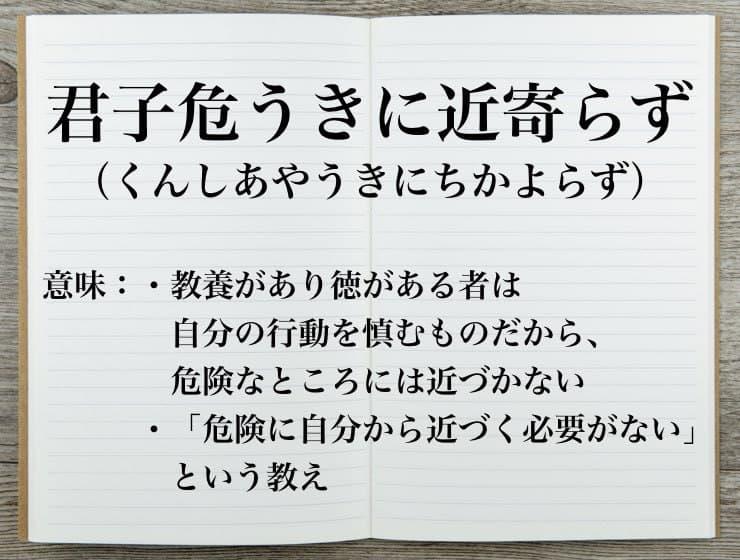 君子危うきに近寄らず
（くんしあやうきにちかよらず）
意味：・教養があり徳がある者は
自分の行動を慎むものだから、
危険なところには近づかない
・「危険に自分から近づく必要がない」
という教え